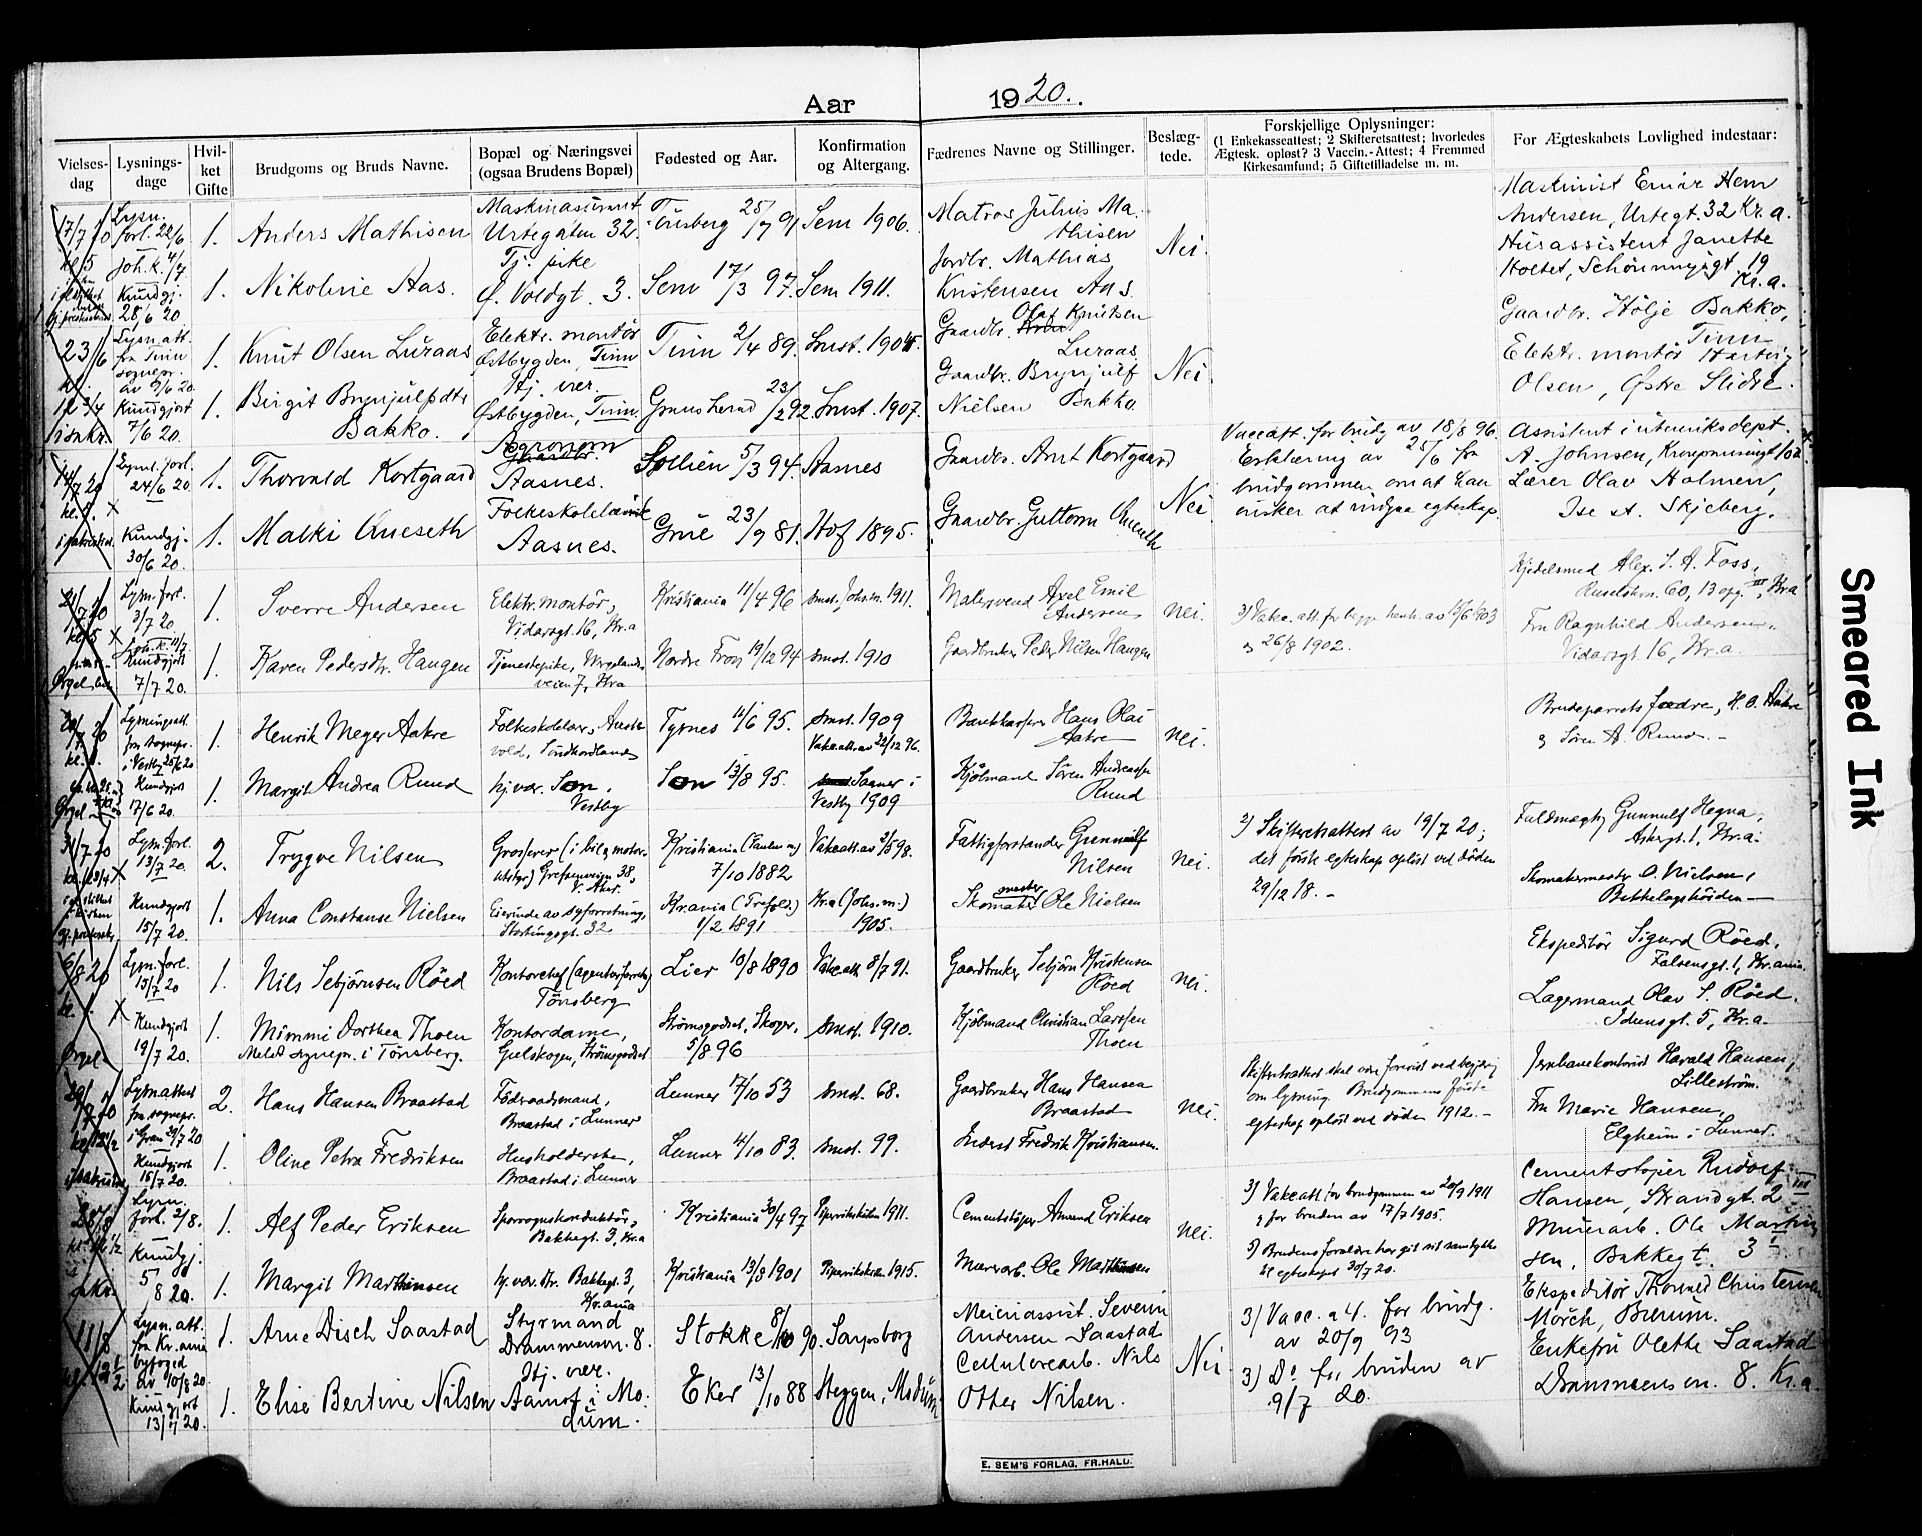 Aar 1920.
Vielses-dag
Lysnings-dage
Hvil-ket Gifte
Brudgoms og Bruds Navne.
Bopæl og Næringsvei (ogsaa Brudens Bopæl)
Fødested og Aar.
Konfirmation og Altergang.
Fædrenes Navne og Stillinger.
Beslæg-tede.
Forskjellige Oplysninger:
(1 Enkekasseattest; 2 Skifteretsattest; hvorledes
Ægtesk. opløst? 3 Vaccin.-Attest; 4 Fremmed
Kirkesamfund; 5 Giftetilladelse m. m.
For Ægteskabets Lovlighed indestaar:
17/7 20 Lysn. forl. 22/6 1. Anders Mathisen
Urtegaten 32. Tønsberg 25/9 91 Sem 1906. Matros Julius Mathisen Nei.
Maskinist Einar Hem
Andersen, Urtegt. 32 Kr.a.
Husassistent Janette
Kr.a.
kl. 5 Joh.k. 4/7 Kundgj. 28/6 20 1. Nikoline Aas. Tj. pike
Ø. Voldgt. 3. Sem 17/3 97. Sem 1911. Jordbr. Mathias
Kristensen Aas.
23/6 Lysn.att. fra Tinn sognepr. av 9/6 20. 1. Knut Olsen Luraas Elektr. montör
Østbygden, Tinn Tinn 2/4 89. Gaardbr. Olaf Knutsen
Luraas Nei.
Gaardbr. Hölje Bakko,
Tinn
Elektr. montör
Olsen, Østre Slidre.
Kundgjort 7/6 20. 1. Birgit Brynjulfsdtr
Bakko. Hj. vær.
Østbygden, Tinn. Gransherad 23/2 92 1907. Gaardbr. Brynjulf
Nielsen Bakko.
14/7 20 Lysn. forl. 24/6 20. 1. Thorvald Kortgaard Agronom
Aasnes. Sollien 5/3 94. Aasnes Gaardbr. Arnt Kortgaard Nei
Vacc.att. for brudg av 18/8 96.
Erklæring av 25/6 fra
brudgommen om at han
ønsker at indgaa egteskap.
Assistent i utenriksdept.
A. Johnsen,
Lærer Olav Holmen,
Ise st. Skjeberg.
Kundgj. 30/6 20. 1. Malki Aneseth Folkeskolelærerinde
Aasnes. Grue 23/9 81. Hof 1895. Gaardbr. Guttorm Aneseth
21/7 20 kl. 5 Lysn. forl. 3/7 20. 1. Sverre Andersen Elektr. montör,
Vidarsgt. 16, Kr.a Kristiania 11/4 96 Malersvend Axel Emil
Andersen nei.
3) Vakc.att. for begge henh. av 15/6 1903
& 26/8 1902.
Kjedelsmed Alex. S. A. Foss,
60, 13 opg. III, Kr.a
Fru Ragnhild Andersen,
Vidarsgt. 16, Kr.a.
Joh.k. 11/7 Kundgjort 7/7 20. 1. Karen Pedersdtr. Haugen Tjenestepike, Wergelands
veien 7, Kr.a Nordre Fron 19/12 94 smst. 1910 Gaardbruker Peder Nilsen Haugen
Lysningsatt. fra sognepr. i Vestby 25/6 20 1. Henrik Meyer Aakre Folkeskolelærer,
Söndhordland Tysnes 11/6 95. smst. 1909
Vakc.att. av 22/12 96. Bankkasserer Hans Olai
Aakre nei.
Brudeparrets fædre, H. O. Aakre
& Sören A. Ruud. -
Kundgjort 17/6 20. 1. Margit Andrea Ruud hj.vær. Son,
Vestby Son 13/8 95. Saaner i
Vestby 1909 Kjöbmand Sören Andreassen
Ruud
31/7 20 Lysn.forl. 13/7 20. 2. Trygve Nilsen Grosserer (i bil & motor-
utstyr) Grefsenveien 38,
V. Aker. Kristiania (Paulus m)
7/10 1882 Vakc.att. av 2/5 98. Fattigforstander Gunnulf
Nilsen nei.
2) Skifteretsattest av 19/7 20;
det förste egteskap oplöst ved döden
29/12 18. -
Fuldmegtig Gunnulf Hegna,
Kr.a.
Skomakermester O. Nielsen,
Bekkelagshöiden -
Kundgjort 15/7 20. 1. Anna Constanse Nielsen Eierinde av syforretning,
Stortingsgt. 32 Kr.ania (Trefold.)
1/2 1891 Kr.a (Johs. m.)
1905. Skomakermester Ole Nielsen
6/8 20 Lysn.forl. 13/7 20 1. Nils Sebjörnsen Röed Kontorchef (agenturforretn.)
Tönsberg Lier 10/8 1890 Vakc.att. 8/7 91. Gaardbruker Sebjörn Kristensen
Röed nei.
Ekspeditör Sigurd Röed,
Falsensgt. 1, Kr.ania
Lagermand Olav S. Röed,
Idunsgt. 5, Kr.a.
Kundgjort 19/7 20. 1. Mimmi Dorthea Thoen
Meldt sognepr. i Tönsberg. Kontordame,
Gulskogen, Strömsgodset Strömsgodset, Skoger,
5/8 96 smst. 1910. Kjöbmand Christian Larssen
Thoen
29/7 20 Lysn.attest fra sognepr. i Gran 29/7 20 2. Hans Hansen Braastad Föderaadsmand,
Braastad i Lunner Lunner 17/10 53 smst. 68. Gaardbruker Hans Hansen
Braastad nei.
Skifteretsattest skal være forevist ved begjæring
om lysning. Brudgommens förste
egteskap oplöst ved döden 1912. -
Jernbanekontorist Harald Hansen,
Lilleström.
Fru Marie Hansen,
Elgheim i Lunner.
Kundgjort 15/7 20. 1. Oline Petra Fredriksen Husholderske,
Braastad i Lunner Lunner 4/10 83. smst. 99. Inderst Fredrik Kristiansen.
28/8 Lysn. forl. 2/8. 1. Alf Peder Eriksen Sporvognskonduktör,
Bakkegt. 3, Kr.a Kristiania 30/4 97 Piperviksk. 1911. Cementstöper Amund Eriksen nei.
3) Vakc.att. for brudgommen av 20/9 1911
& for bruden av 17/7 1905.
5) Brudens forældre har git sit samtykke
til egteskapet 30/7 20.
Cementstöper Rudolf
Hansen, Strandgt. 2 III
Murerarb. Ole Martin
sen, Bakkegt. 3
Kundgj. 5/8 20. 1. Margit Marthinsen hj.vær. Bakkegt. 3,
Kr.ania Kristiania 13/8 1901 1915. Murerarb. Ole Marthinsen
11/8 kl. 12 1/2 Lysn. att. fra Kr.ania byfoged av 10/8 20. 1 Arne Disch Saastad Styrmand
Drammensvn. 8. Stokke 8/10 90. Sarpsborg Meieriassist. Severin
Andersen Saastad Nei
3) Vacc. att. for brudg.
av 20/9 93
3) Do for bruden av
9/7 20.
Ekspeditör Thorvald Christensen
Mörch, Bærum.
Enkefru Olette Saastad
Drammensvn. 8. Kr.a.
Kundgjort 13/7 20. 1. Elise Bertine Nilsen Hj. vær.
Aamot i Mo-
dum. Eker 13/10 88 Heggen, Modum Cellulosearb. Nils
Otter Nilsen.
E. SEM'S FORLAG, FR.HALD.
Smeared Ink